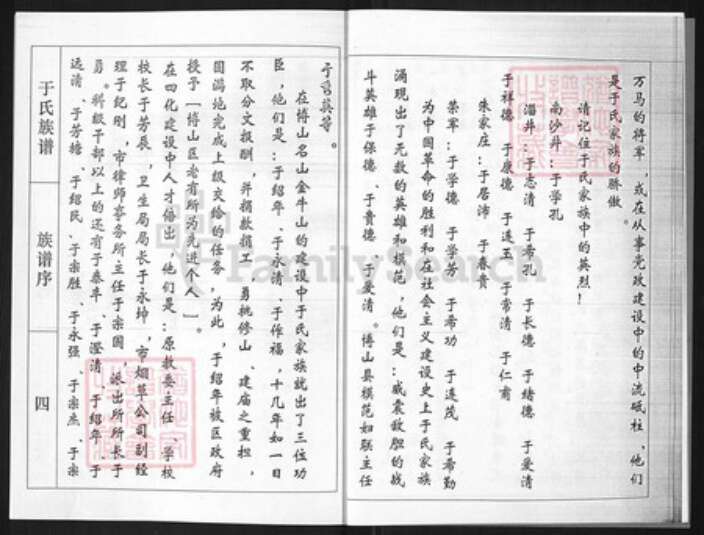 万马的将军，或在从事党政建设中的中流砥柱，他们
是于氏家族的骄傲。
请记住于氏家族中的英烈！
南沙井：于学孔
淄井：于志清 于希孔 于长德 于绪德 于爱清
于祥德 于原德 于连玉 于常清 于仁甫
朱家庄：于居沛 于春贵
荣军：于学德 于学芳 于希功 于连茂 于希勤
为中国革命的胜利和在社会主义建设史上于氏家族
涌现出了无数的英雄和模范，他们是：威震敌胆的战
斗英雄于保德、于贵德、于爱清。博山县模范妇联主任
于秀英等。
在博山名山金牛山的建设中于氏家族就出了三位功
臣，他们是：于绍年、于永清、于作福，十几年如一日
不取分文报酬，并捐款捐工，勇挑修山、建庙之重担，
圆满地完成上级交给的任务，为此，于绍年被区政府
授予［博山区老有所为先进个人］。
在四化建设中人才倍出，他们是：原教委主任、学校
校长于芳辰，卫生局局长于永坤，市烟草公司副经
理于纪刚，市律师事务所主任于宗国，派出所所长于
勇。科级干部以上的还有于泰车、于澄清、于绍年、于
远清、于芳塘、于绍民、于宗胜、于永强、于宗杰、于宗
于氏族谱
族谱序
四
FamilySearch